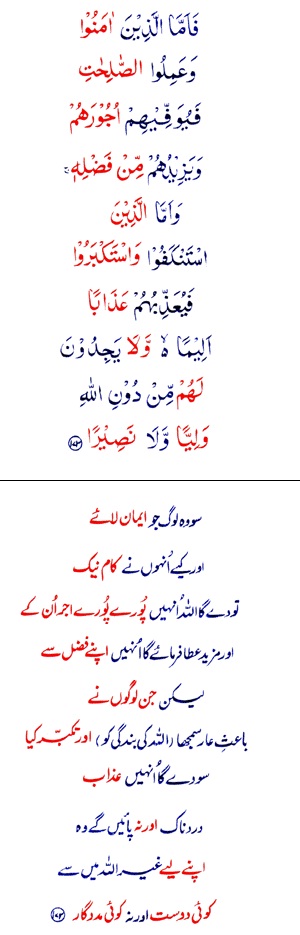 فَاَمَّا الَّذِيْنَ اٰمَنُوْا
وَعَمِلُوا الصّٰلِحٰتِ
فَيُوَفِّيْهِمْ اُجُوْرَهُمْ
وَيَزِيْدُهُمْ مِّنْ فَضْلِهٖ ۚ
وَاَمَّا الَّذِيْنَ
اسْتَنْكَفُوْا وَاسْتَكْبَرُوْا
فَيُعَذِّبُهُمْ عَذَابًا
اَلِيْمًا ۙ وَّلَا يَجِدُوْنَ
لَهُمْ مِّنْ دُوْنِ اللّٰهِ
وَلِيًّا وَّلَا نَصِيْرًا ﴿۱۷۳﴾
سو وہ لوگ جو ایمان لائے
اور کیے اُنہوں نے کام نیک
تو دے گا اللہ اُنہیں پُورے پُورے اجر اُن کے
اور مزید عطا فرمائے گا اُنہیں اپنے فضل سے
لیکن جن لوگوں نے
باعثِ عار سمجھا (اللہ کی بندگی کو) اور تکبّر کیا
سو دے گا اُنہیں عذاب
دردناک اور نہ پائیں گے وہ
اپنے لیے غیر اللہ میں سے
کوئی دوست اور نہ کوئی مددگار ﴿۱۷۳﴾